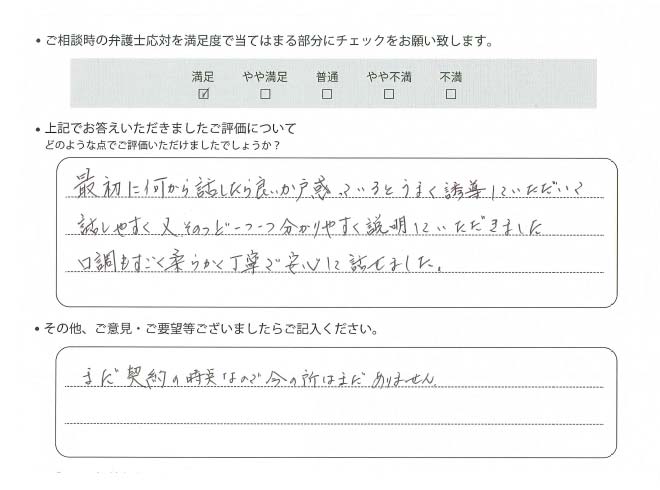 ・ご相談時の弁護士応対を満足度で当てはまる部分にチェックをお願い致します。
満足 やや満足 普通 やや不満 不満
☑ □ □ □ □
・上記でお答えいただきましたご評価について
どのような点でご評価いただけましたでしょうか？
最初に何から話したら良いか戸惑っているとうまく誘導していただいて
話しやすく又、そのつど一つ一つ分かりやすく説明していただきました
口調もすごく柔らかく丁寧で安心して話せました。
・その他、ご意見・ご要望等ございましたらご記入ください。
まだ契約の時点なので今の所はまだありません。